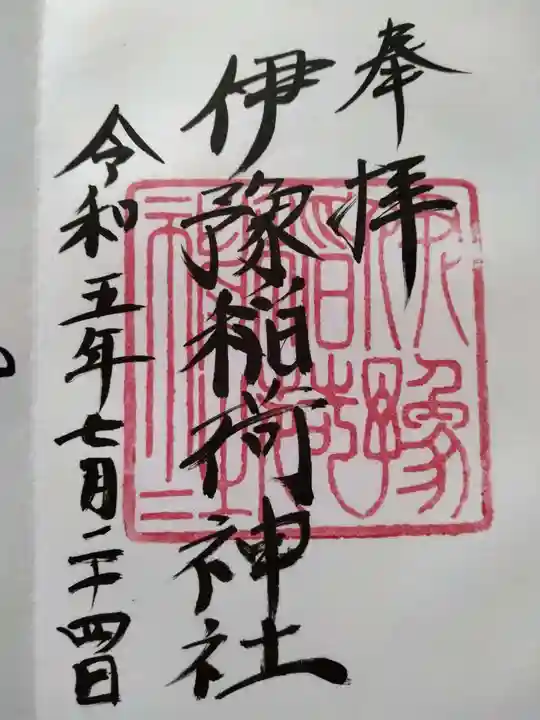 奉拝
伊豫稲荷神社
令和五年七月二十四日